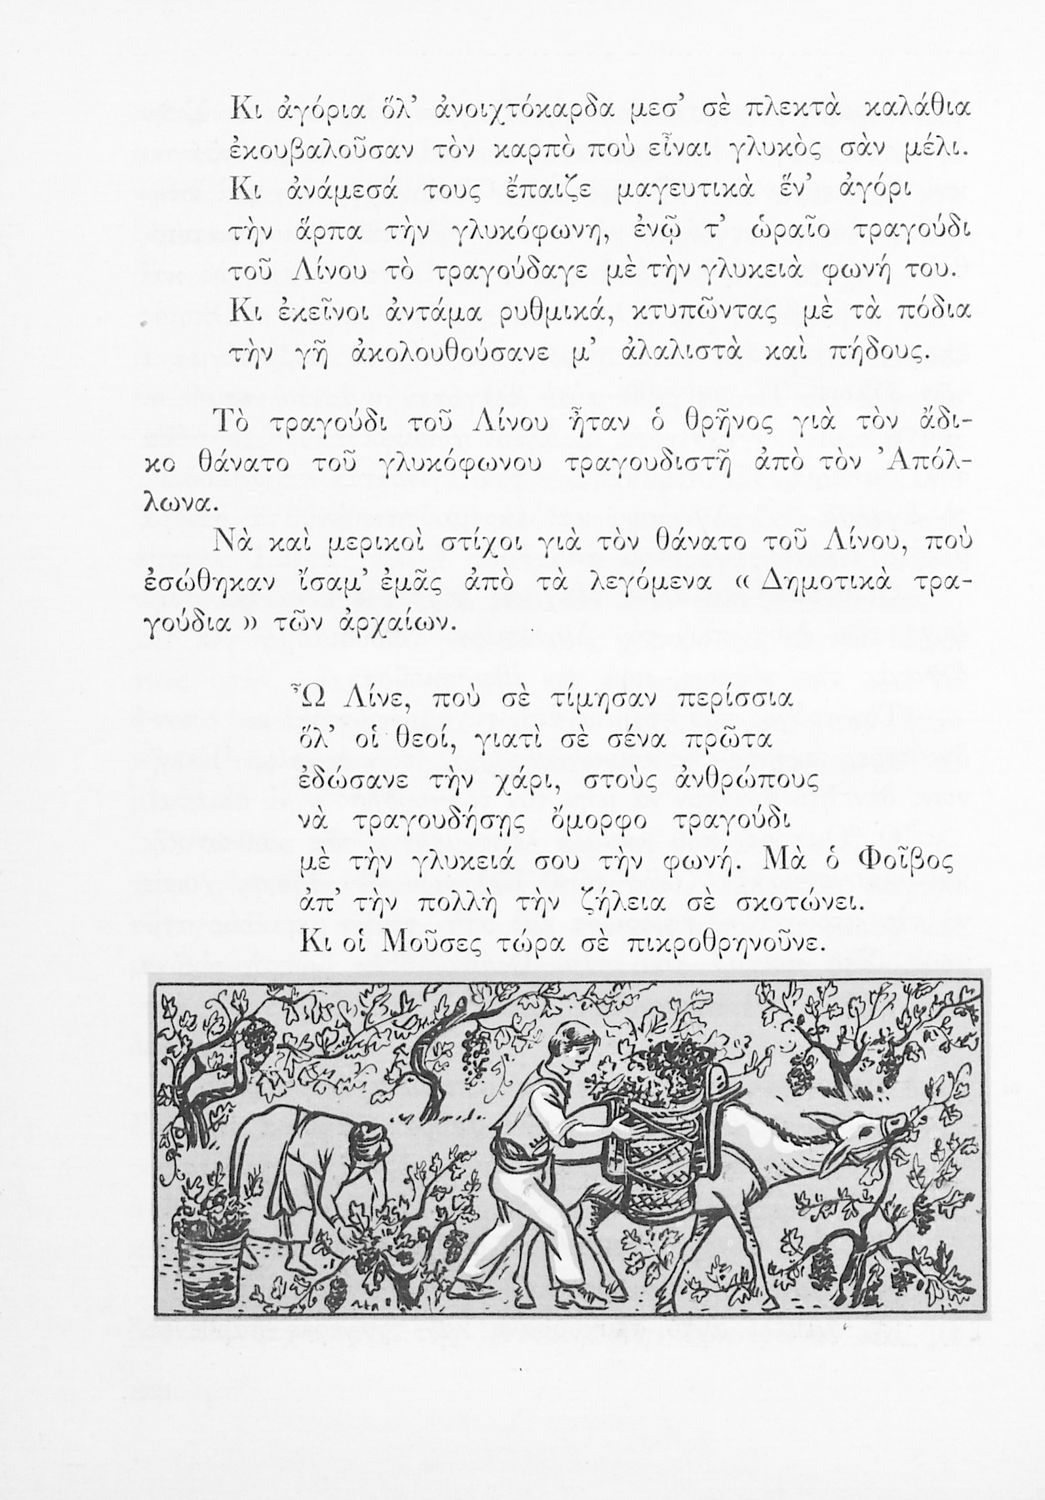 Κι ἀγόρια ὅλ’ ἀνοιχτόκαρδα μεσ’ σὲ πλεκτὰ καλάθια
ἐκουβαλοῦσαν τὸν καρπὸ ποὺ εἶναι γλυκὸς σὰν μέλι.
Κι ἀνάμεσά τους ἔπαιζε μαγευτικὰ ἕν’ ἀγόρι
τὴν ἅρπα τὴν γλυκόφωνη, ἐνῷ τ’ ὡραῖο τραγούδι
τοῦ Λίνου τὸ τραγούδαγε μὲ τὴν γλυκειὰ φωνή του.
Κι ἐκεῖνοι ἀντάμα ρυθμικά, κτυπῶντας μὲ τὰ πόδια
τὴν γῆ ἀκολουθούσανε μ’ ἀλαλιστὰ καὶ πήδους.
Τὸ τραγούδι τοῦ Λίνου ἦταν ὁ θρῆνος γιὰ τὸν ἄδι-
κο θάνατο τοῦ γλυκόφωνου τραγουδιστῆ ἀπὸ τὸν Ἀπόλ-
λωνα.
Νὰ καὶ μερικοὶ στίχοι γιὰ τὸν θάνατο τοῦ Λίνου, ποὺ
ἐσώθηκαν ἴσαμ’ ἐμᾶς ἀπὸ τὰ λεγόμενα « Δημοτικὰ τρα-
γούδια » τῶν ἀρχαίων.
Ὦ Λίνε, ποὺ σὲ τίμησαν περίσσια
ὅλ’ οἱ θεοί, γιατὶ σὲ σένα πρῶτα
ἐδώσανε τὴν χάρι, στοὺς ἀνθρώπους
νὰ τραγουδήσῃς ὄμορφο τραγούδι
μὲ τὴν γλυκειά σου τὴν φωνή. Μὰ ὁ Φοῖβος
ἀπ’ τὴν πολλὴ τὴν ζήλεια σὲ σκοτώνει.
Κι οἱ Μοῦσες τώρα σὲ πικροθρηνοῦνε.